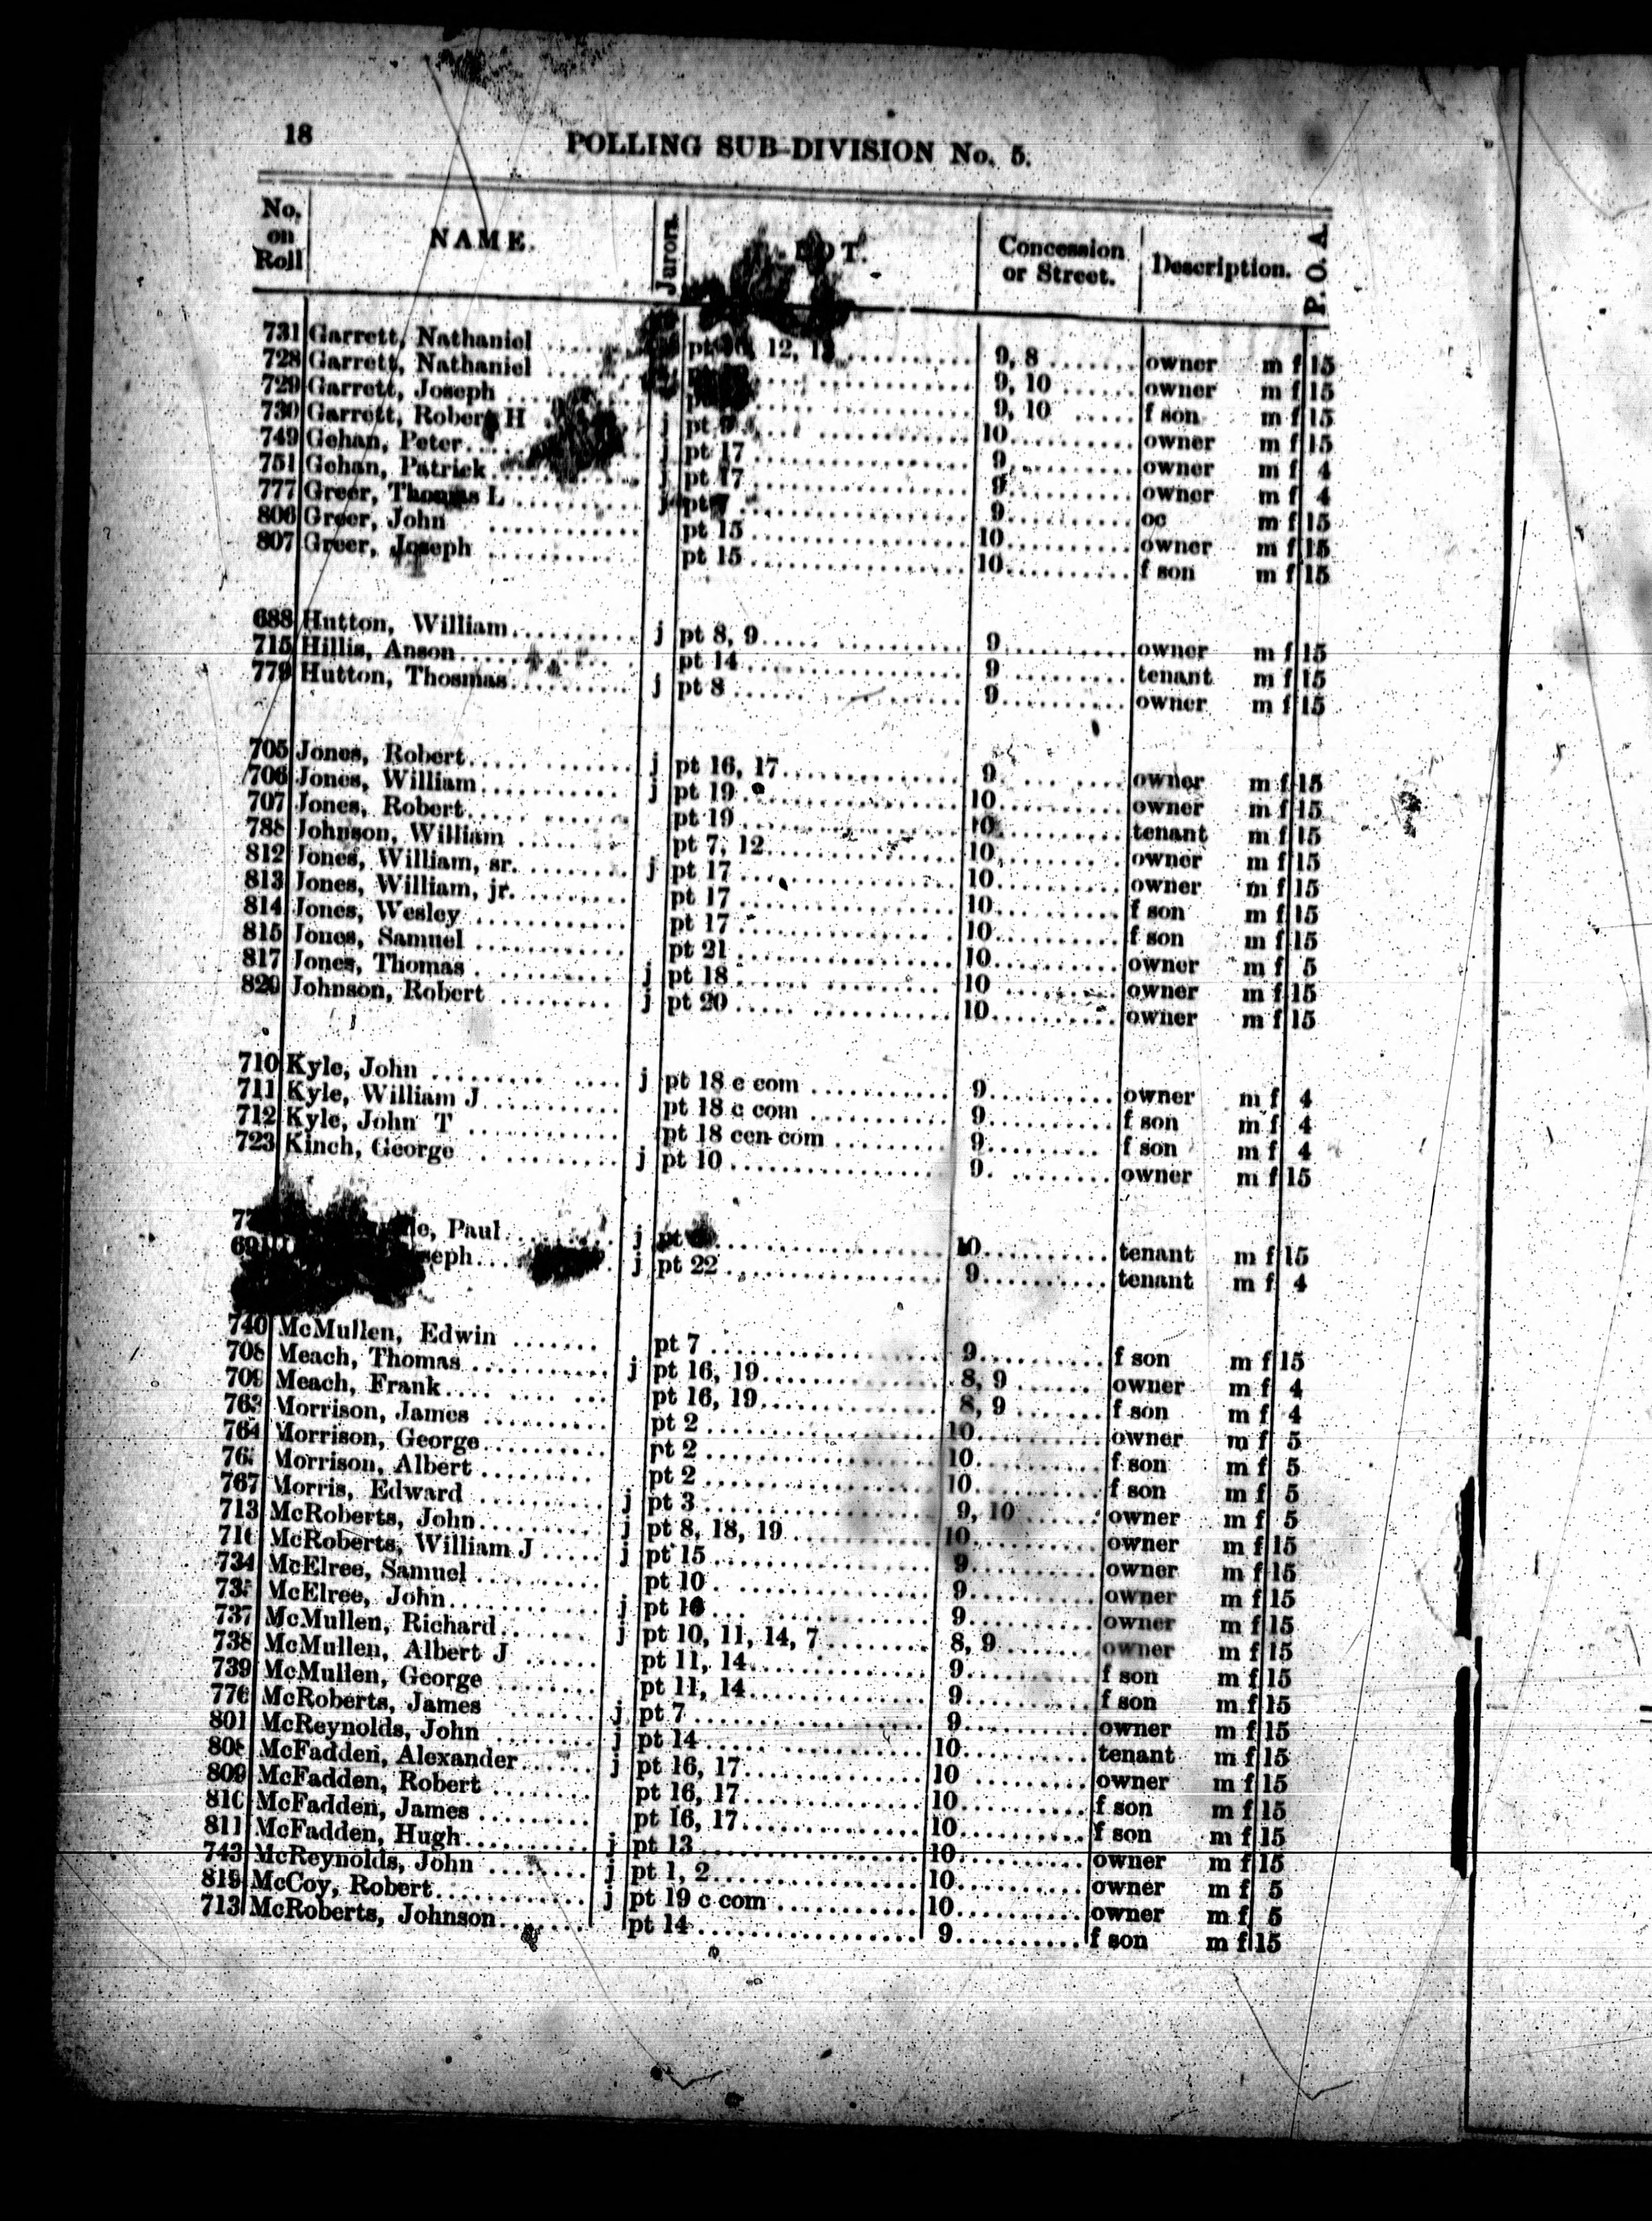 18
POLLING SUB-DIVISION No. 5.
No. on Roll NAME. Jurors. LOT. Concession or Street. Description. P. O. A.
731 Garrett, Nathaniel pt 12, 9, 8 owner m f 15
728 Garrett, Nathaniel 9, 10 owner m f 15
729 Garrett, Joseph 9, 10 f son m f 15
730 Garrett, Robert H j pt 10 owner m f 15
749 Gehan, Peter j pt 17 9 owner m f 4
751 Gehan, Patrick j pt 17 9 owner m f 4
777 Greer, Thomas L j pt 7 9 oc m f 15
806 Greer, John pt 15 10 owner m f 15
807 Greer, Joseph pt 15 10 f son m f 15
688 Hutton, William j pt 8, 9 9 owner m f 15
715 Hillis, Anson pt 14 9 tenant m f 15
779 Hutton, Thosmas j pt 8 9 owner m f 15
705 Jones, Robert j pt 16, 17 9 owner m f 15
706 Jones, William j pt 19 10 owner m f 15
707 Jones, Robert pt 19 10 tenant m f 15
788 Johnson, William pt 7, 12 10 owner m f 15
812 Jones, William, sr. j pt 17 10 owner m f 15
813 Jones, William, jr. pt 17 10 f son m f 15
814 Jones, Wesley pt 17 10 f son m f 15
815 Jones, Samuel pt 21 10 owner m f 5
817 Jones, Thomas j pt 18 10 owner m f 15
820 Johnson, Robert j pt 20 10 owner m f 15
710 Kyle, John j pt 18 e com 9 owner m f 4
711 Kyle, William J pt 18 c com 9 f son m f 4
712 Kyle, John T pt 18 cen com 9 f son m f 4
723 Kinch, George j pt 10 9 owner m f 15
Paul j pt 10 tenant m f 15
j pt 22 9 tenant m f 4
740 McMullen, Edwin pt 7 9 f son m f 15
708 Meach, Thomas j pt 16, 19 8, 9 owner m f 4
709 Meach, Frank pt 16, 19 8, 9 f son m f 4
763 Morrison, James pt 2 10 owner m f 5
764 Morrison, George pt 2 10 f son m f 5
Morrison, Albert pt 2 10 f son m f 5
767 Morris, Edward j pt 3 9, 10 owner m f 5
713 McRoberts, John j pt 8, 18, 19 10 owner m f 15
716 McRoberts, William J j pt 15 9 owner m f 15
734 McElree, Samuel pt 10 9 owner m f 15
735 McElree, John j pt 10 9 owner m f 15
737 McMullen, Richard j pt 10, 11, 14, 7 8, 9 owner m f 15
738 McMullen, Albert J pt 11, 14 9 f son m f 15
739 McMullen, George pt 11, 14 9 f son m f 15
776 McRoberts, James j pt 7 9 owner m f 15
801 McReynolds, John j pt 14 10 tenant m f 15
808 McFadden, Alexander j pt 16, 17 10 owner m f 15
809 McFadden, Robert pt 16, 17 10 f son m f 15
810 McFadden, James pt 16, 17 10 f son m f 15
811 McFadden, Hugh j pt 13 10 owner m f 15
743 McReynolds, John j pt 1, 2 10 owner m f 5
819 McCoy, Robert j pt 19 c com 10 owner m f 5
713 McRoberts, Johnson pt 14 9 f son m f 15